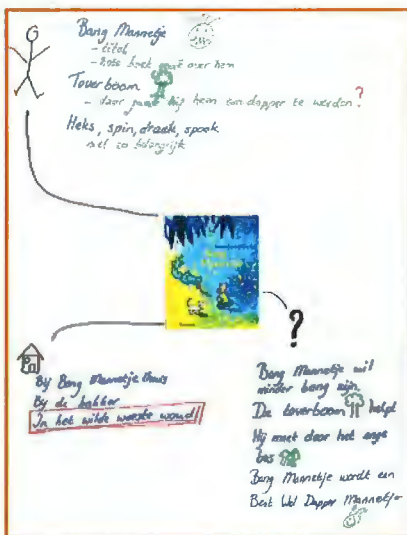 Bang Mannetje
- titel
- hele boek gaat over hem
Toverboom
- daar gaat hij heen om dapper te worden?
Heks, spin, draak, spook
niet zo belangrijk
Bang Mannetje
?
Bij Bang Mannetje thuis
Bij de bakker
In het wilde woeste woud!
Bang Mannetje wil
minder bang zijn.
De toverboom helpt
Hij moet door het enge
bos
Bang Mannetje wordt een
Best Wel Dapper Mannetje